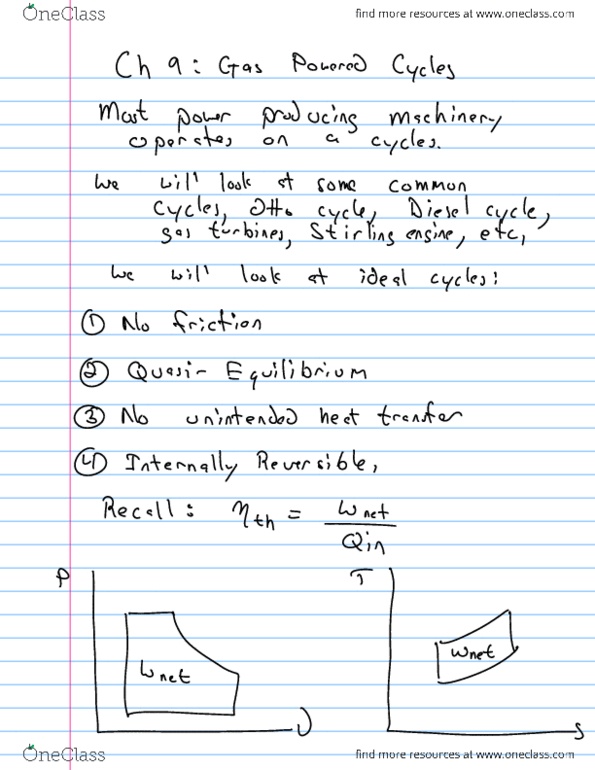 OneClass
find more resources at www.oneclass.com
Ch 9: Gas Powered Cycles
Most power producing machinery
operates on a cycles.
We will look at some common
cycles, Otto cycle, Diesel cycle,
gas turbines, Stirling engine, etc,
We will look at ideal cycles:
① No friction
② Quasi-Equilibrium
③ No unintended heat transfer
④ Internally Reversible,
Recall: ηth = Wnet
Qin
P
T
Wnet
Wnet
V
S
OneClass
find more resources at www.oneclass.com